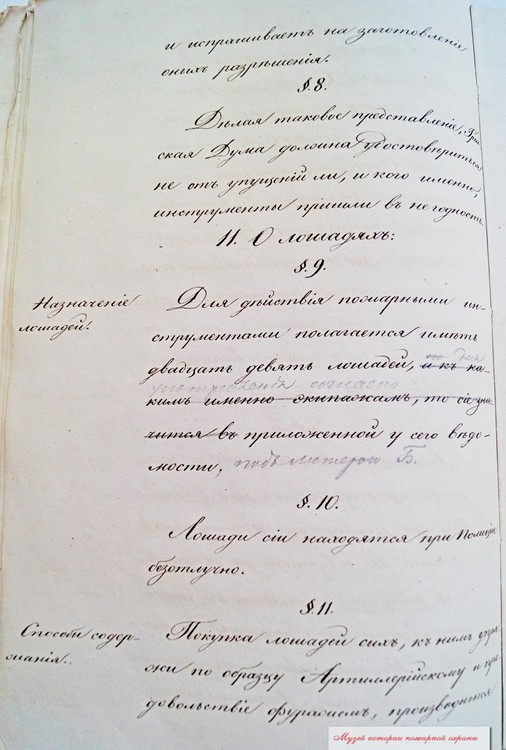 и испрашиваетъ на заготовленіе
оныхъ разрѣшенія.
§. 8.
Дѣлая таковое представленіе,
ская Дума должна удостовѣриться
не отъ упущеній ли, и кого именно,
инструменты пришли въ негодность
II. О лошадяхъ:
§. 9.
Назначеніе
лошадей.
Для дѣйствія пожарными ин-
струментами полагается имѣть
двадцать девять лошадей, и къ ка-
употребленія согласно
кимъ именно экипажамъ, то сіе зна-
чится въ приложенной у сего вѣдо-
мости, подъ литерою Б.
§. 10.
Лошади сіи находятся при Полиціи
безотлучно.
§. 11.
Способы содер-
жанія.
Покупка лошадей сихъ, къ нимъ
жи по образцу Артиллерійскому и
довольствіе фуражемъ, производится
Музей истории пожарной охраны